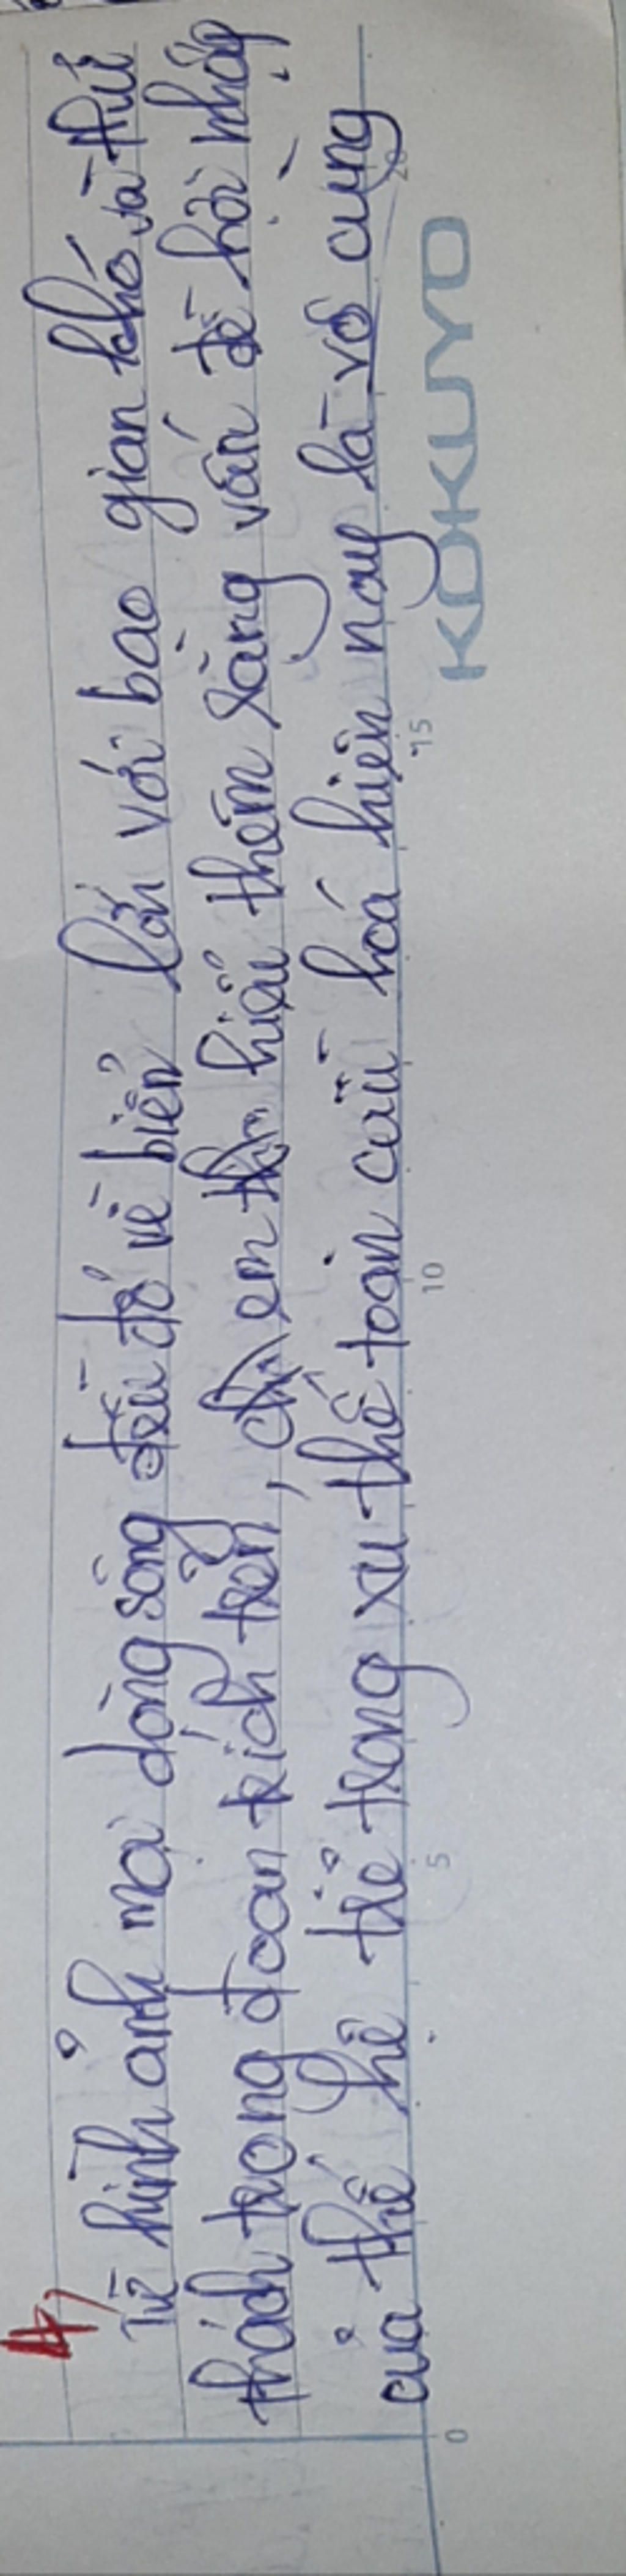 4)
Từ hình ảnh mọi dòng sông đều đổ về biển lớn với bao gian khó và thử
thách trong đoạn trích trên, em hiểu thêm rằng vấn đề hội nhập
của thế hệ trẻ trong xu thế toàn cầu hoá hiện nay là vô cùng
KOKUYO
0 5 10 15 20